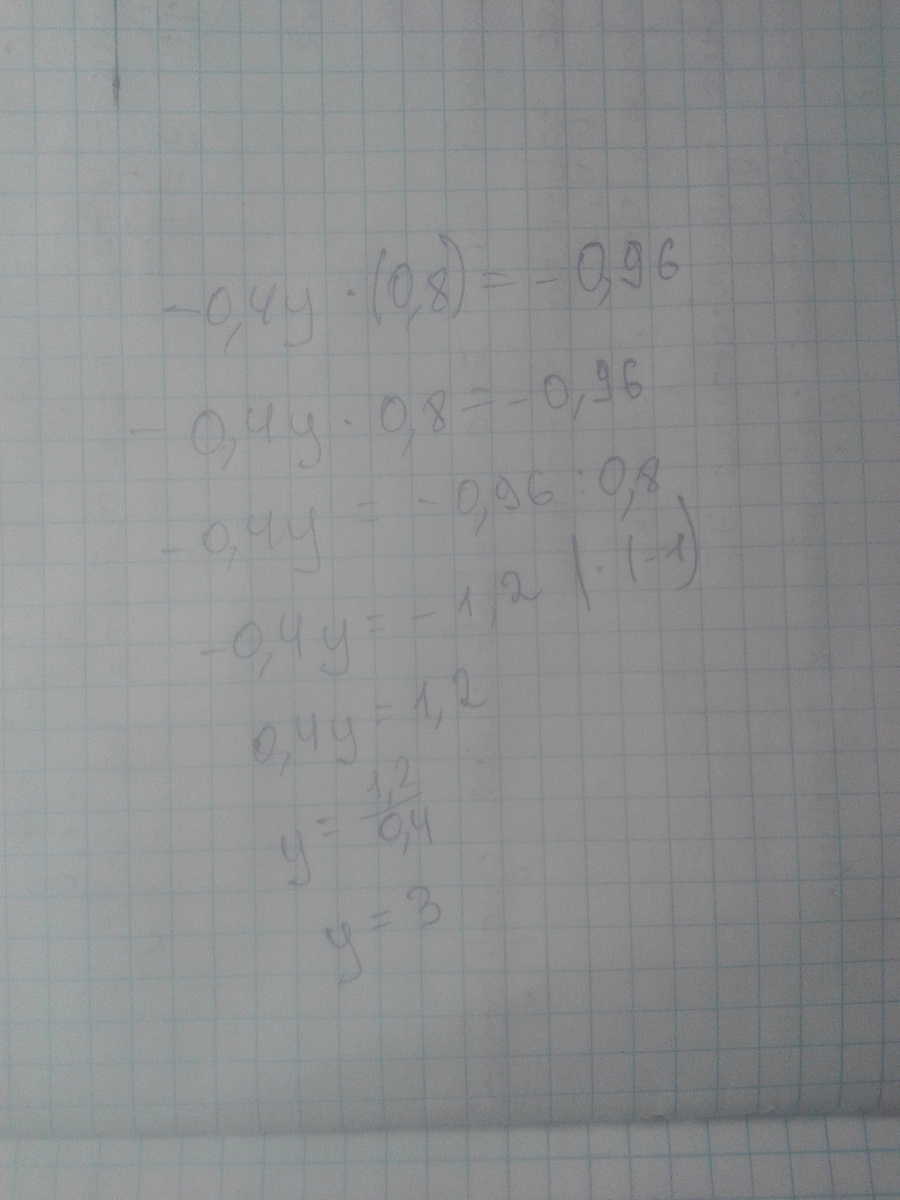 -0,4y · (0,8) = -0,96
- 0,4y · 0,8 = -0,96
-0,4y = -0,96 : 0,8
-0,4y = -1,2 | · (-1)
0,4y = 1,2
y = 1,2/0,4
y = 3